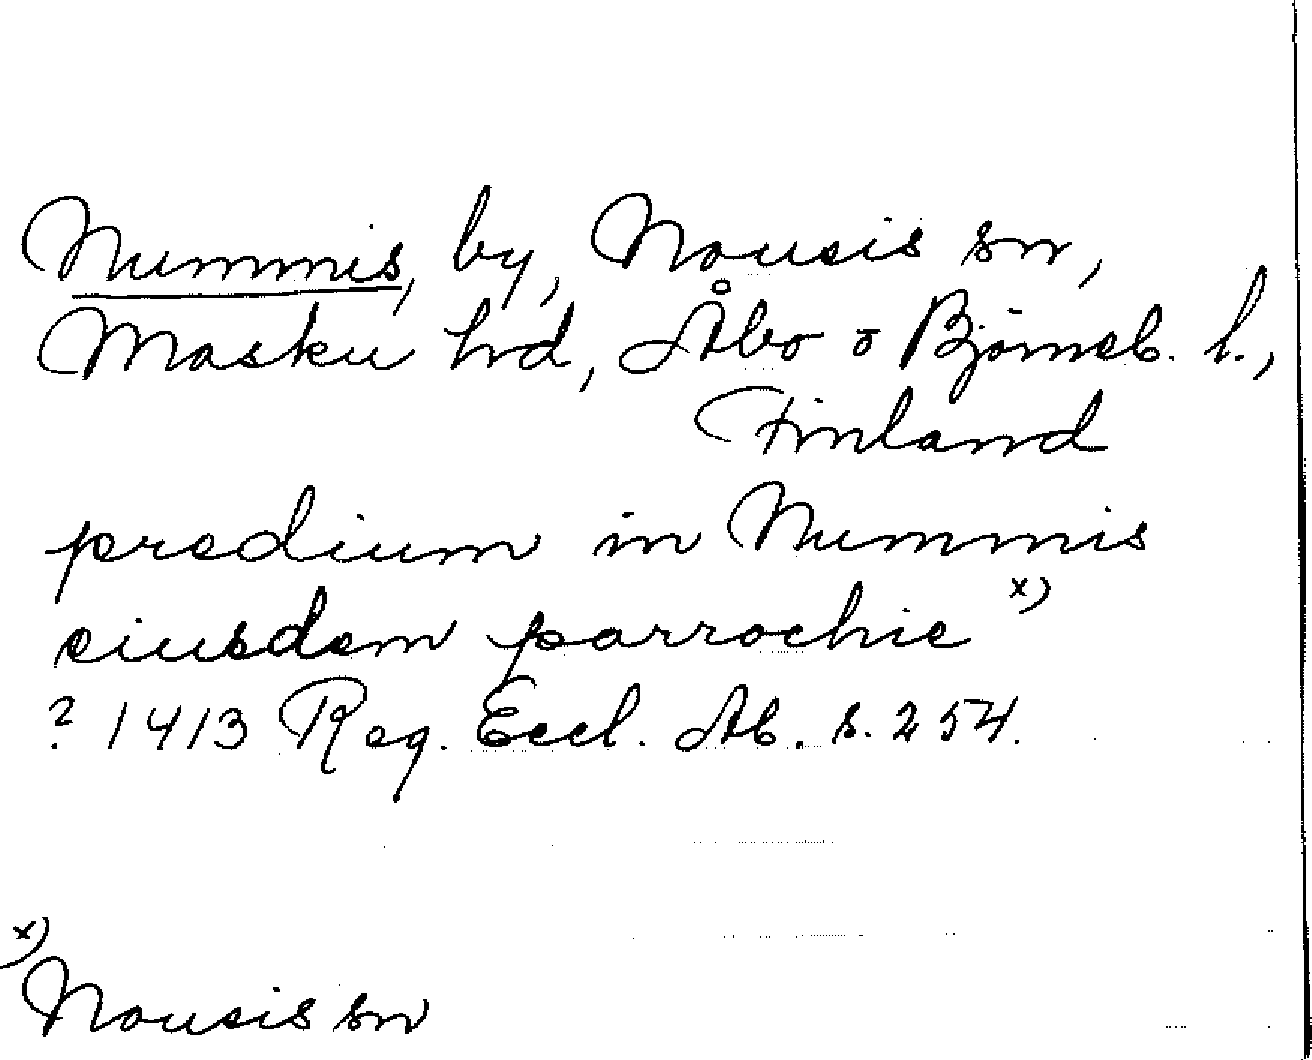 Nummis, by, Nousis sn,
Masku hrd, Åbo o Björneb. l.,
Finland
predium in Nummis
eiusdem parrochie x)
? 1413 Reg. Eccl. Ab. s. 254.
x)
Nousis sn